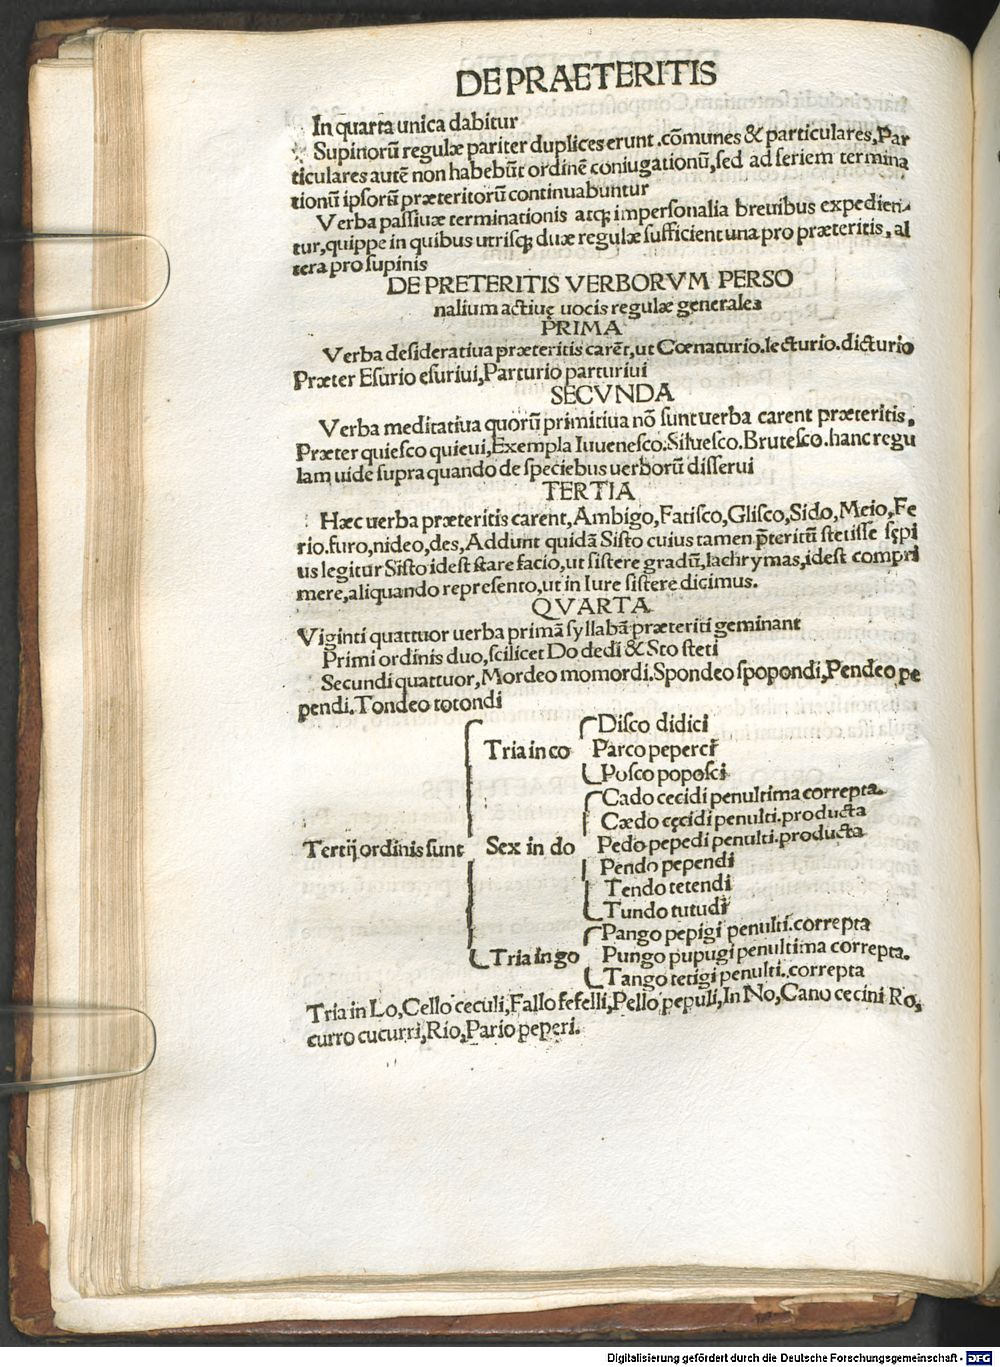 DE PRAETERITIS
In q̄uarta unica dabitur
Supinorū regulæ pariter duplices erunt .cōmunes & particulares, Par
ticulares autē non habebūt ordinē coniugationū, sed ad seriem termina
tionū ipsorū præteritorū continuabuntur
Verba passiuæ terminationis atq; impersonalia breuibus expedien⸗
tur, quippe in quibus utrisq; duæ regulæ sufficient una pro præteritis, al
tera pro supinis
DE PRETERITIS VERBORVM PERSO
nalium actiuę uocis regulæ generales
PRIMA
Verba desideratiua præteritis carēt, ut Cœnaturio. lecturio. dicturio
Præter Esurio esuriui, Parturio parturiui
SECVNDA
Verba meditatiua quorū primitiua nō sunt uerba carent præteritis,
Præter quiesco quieui, Exempla Iuuenesco. Siluesco. Brutesco. hanc regu
lam uide supra quando de speciebus uerborū disserui
TERTIA
Hæc uerba præteritis carent, Ambigo, Fatisco, Glisco, Sido, Meio, Fe
rio. furo, nideo, des, Addunt quidā Sisto cuius tamen p̄teritū stetisse sępi
us legitur Sisto idest stare facio, ut sistere gradū, lachrymas, idest compri
mere, aliquando represento, ut in Iure sistere dicimus.
QVARTA
Viginti quattuor uerba primā syllabā præteriti geminant
Primi ordinis duo, scilicet Do dedi & Sto steti
Secundi quattuor, Mordeo momordi. Spondeo spopondi, Pendeo pe
pendi. Tondeo totondi
Tertij ordinis sunt
Tria in co
Disco didici
Parco peperci
Posco poposci
Sex in do
Cado cecidi penultima correpta.
Cædo cęcidi penulti. producta
Pedo pepedi penulti. producta
Pendo pependi
Tendo tetendi
Tundo tutudi
Tria in go
Pango pepigi penulti. correpta
Pungo pupugi penultima correpta.
Tango tetigi penulti. correpta
Tria in Lo, Cello ceculi, Fallo fefelli, Pello pepuli, In No, Cano cecini Ro,
curro cucurri, Rio, Pario peperi.
Digitalisierung gefördert durch die Deutsche Forschungsgemeinschaft - DFG